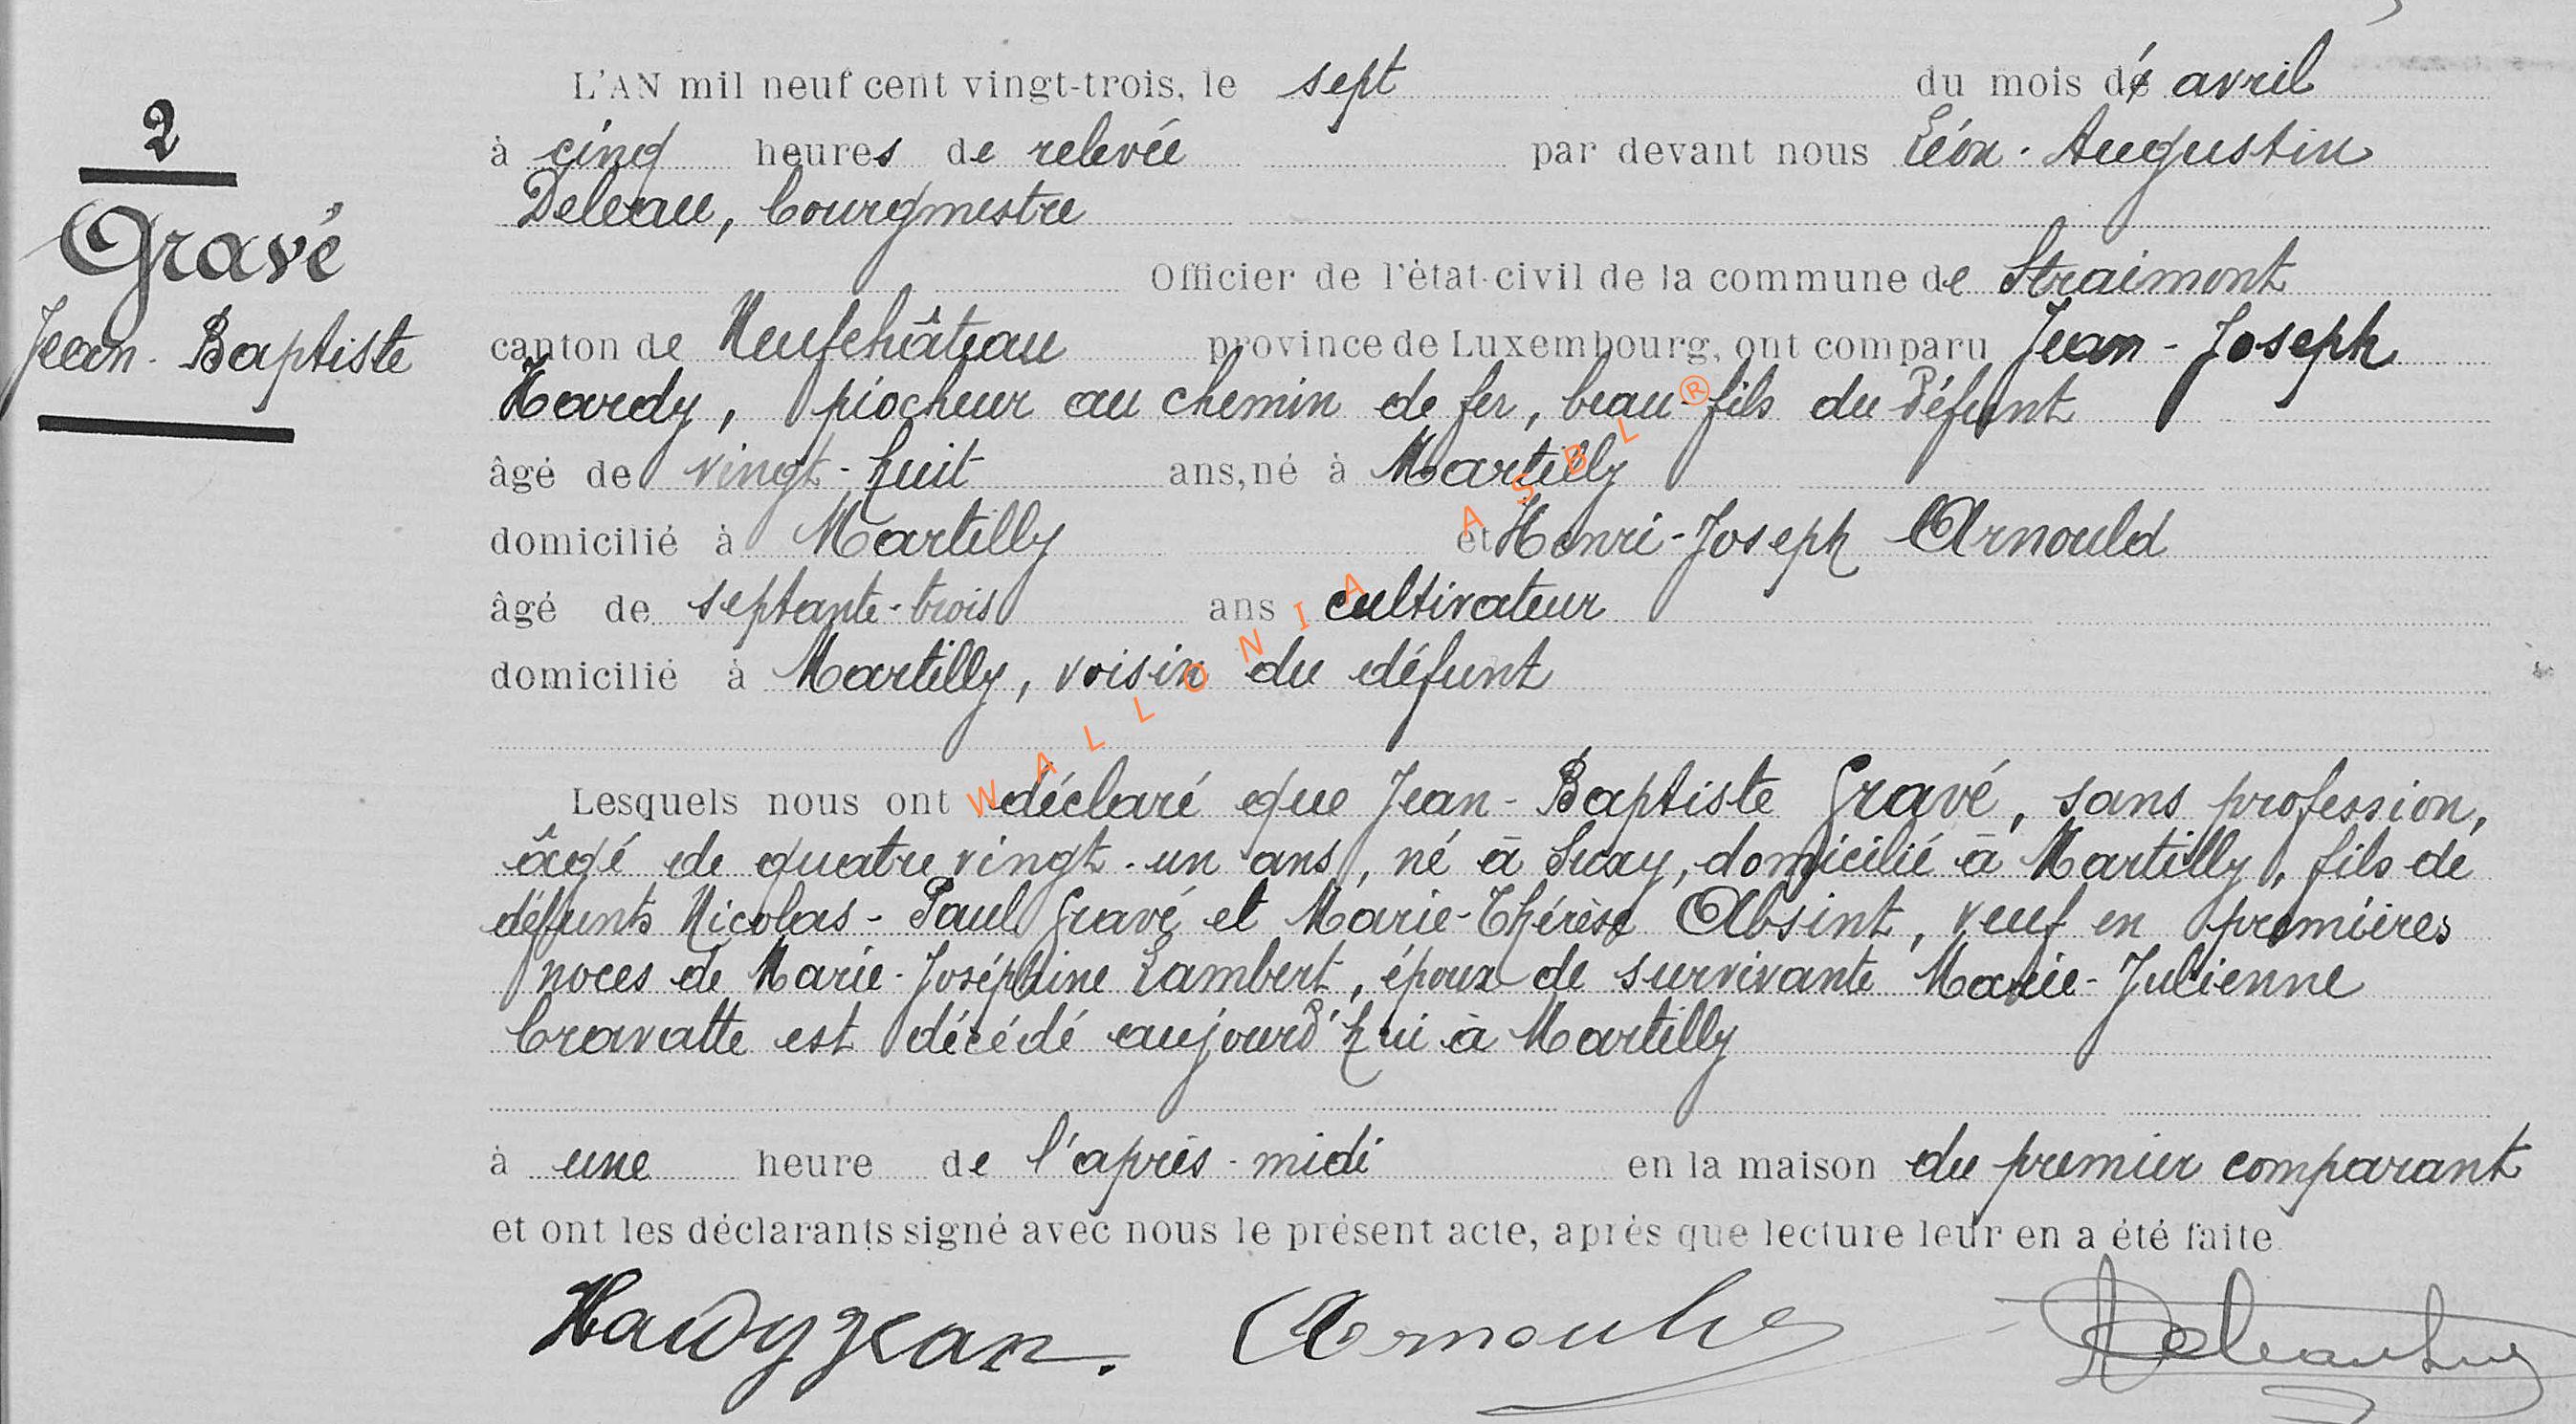 2
Gravé
Jean-Baptiste
L'AN mil neuf cent vingt-trois, le sept du mois d' avril
à cinq heures de relevée par devant nous Léon-Augustin
Deleau, bourgmestre
Officier de l'état-civil de la commune de Straimont
canton de Neufchâteau province de Luxembourg, ont comparu Jean-Joseph
Hardy, piocheur au chemin de fer, beau-fils du défunt
âgé de vingt-huit ans, né à Martilly
domicilié à Martilly et Henri-Joseph Arnould
âgé de septante-trois ans cultivateur
domicilié à Martilly, voisin du défunt
Lesquels nous ont déclaré que Jean-Baptiste Gravé, sans profession,
âgé de quatre vingt-un ans, né à Suxy, domicilié à Martilly, fils de
défunts Nicolas-Paul Gravé et Marie-Thérèse Absint, veuf en premières
noces de Marie-Joséphine Lambert, époux de survivante Marie-Julienne
Cravatte est décédé aujourd'hui à Martilly
à une heure de l'après-midi en la maison du premier comparant
et ont les déclarants signé avec nous le présent acte, après que lecture leur en a été faite
Hardy Jean. Arnould
WALLONIA ASBL ®